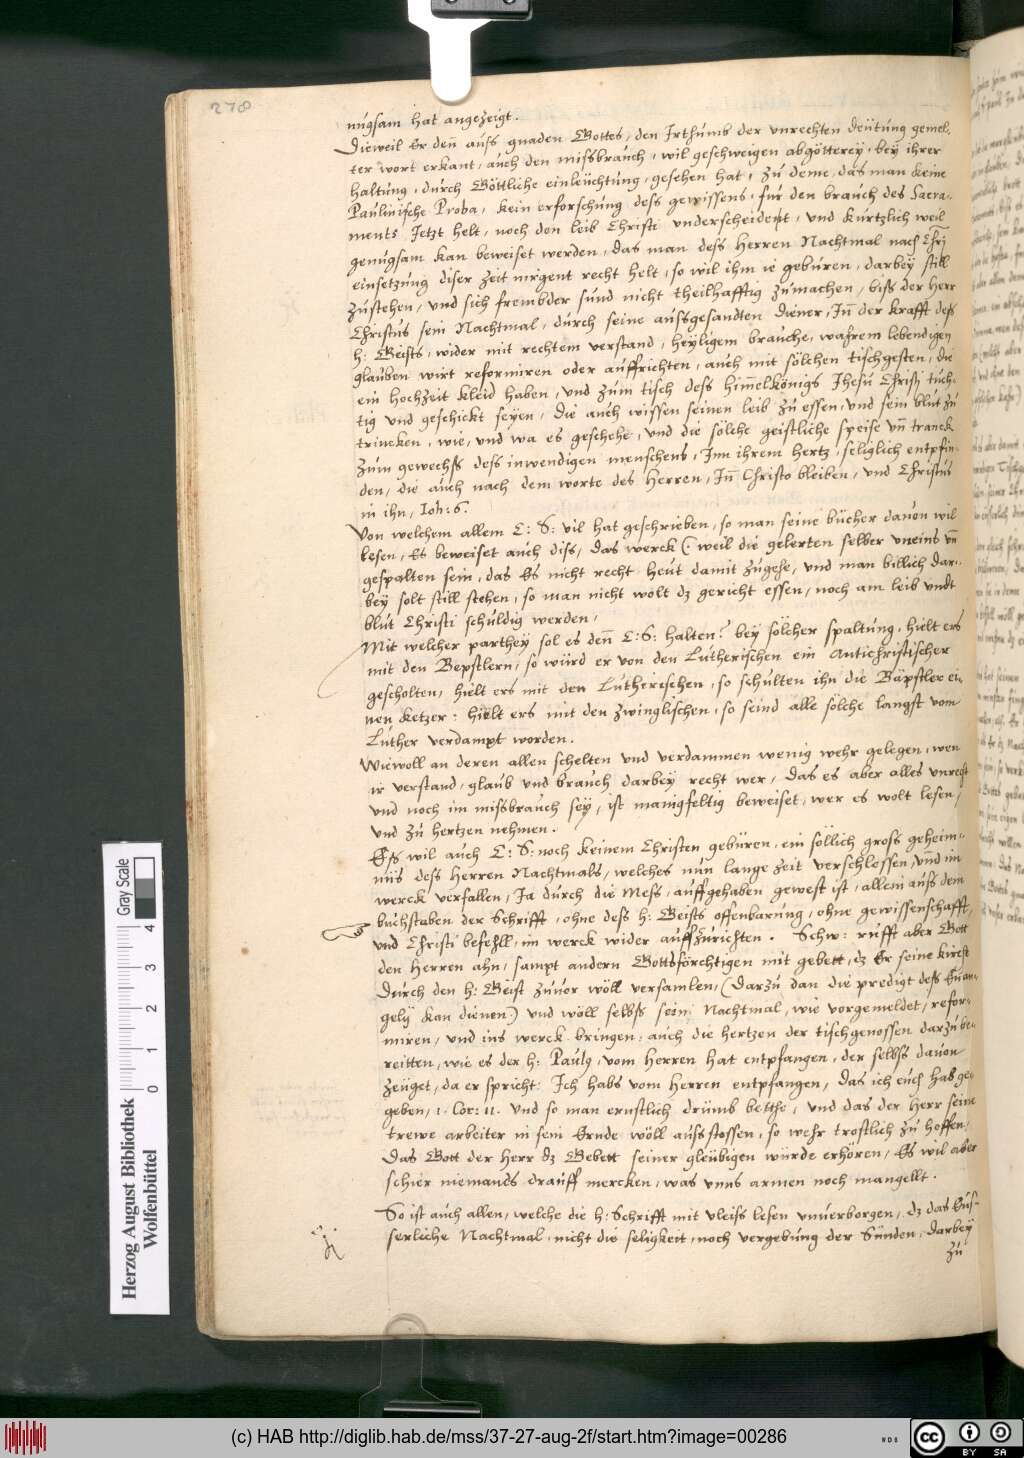 278
nugsam hat angezeigt.
Dieweil Er deñ auss gnaden Gottes, den Irthumb der vnrechten deütung gemel-
ter wort erkant, auch den missbrauch, wil geschweigen abgötterey, bey ihrer
haltung, durch Göttliche einleüchtung, gesehen hat, zu deme, das man keine
Paulinische Proba, kein erforschung dess gewissens, für den brauch des Sacra-
ments Jetzt helt, noch den leib Christi vnderscheident, vnd kurtzlich weil
genugsam kan beweiset werden, das man dess Herren Nachtmal nach Chri
einsetzung diser zeit nirgent recht helt, so wil ihm ie geburen, darbey still
zustehen, vnd sich frembder sund nicht theilhafftig zumachen, biss der Herr
Christus sein Nachtmal, durch seine aussgesandten diener, Iñ der krafft dess
h: Geists, wider mit rechtem verstand, heyligem brauche, wahrem lebendigen
glauben wirt reformiren oder auffrichten, auch mit sölchen tischgesten, die
ein hochzeit kleid haben, vnd zum tisch dess himelkönigs Jhesu Christi tüch-
tig vnd geschickt seyen, die auch wissen seinen leib zu essen, vnd sein blut zu
trincken, wie, vnd wa es geschehe, vnd die sölche geistliche speise vñ tranck
zum gewechss dess inwendigen menschens, Inn ihrem hertz, seliglich entpfin-
den, die auch nach dem worte des Herren, Iñ Christo bleiben, vnd Christus
in ihn, Ioh: 6.
Von welchem allem C: S: vil hat geschrieben, so man seine bücher dauon wil
lesen, Es beweiset auch diss, das werck (: weil die gelerten selber vneins vñ
gespalten sein, das Es nicht recht heut damit zugehe, vnd man billich dar-
bey solt still stehen, so man nicht wölt dz gericht essen, noch am leib vndt
blut Christi schuldig werden,
Mit welcher parthey sol es deñ C: S: halten? bey sölcher spaltung, hielt ers
mit den Bepstlern, so würd er von den Lutherischen ein Antichristischer
gescholten, hielt ers mit den Lutherischen, so schulten ihn die Bäpstler ei-
nen ketzer: hielt ers mit den zwinglischen, so seind alle sölche langst vom
Luther verdampt worden.
Wiewoll an deren allen schelten vnd verdammen wenig wehr gelegen, wen
ir verstand, glaub vnd brauch darbey recht wer, das es aber alles vnrecht
vnd noch im missbrauch sey, ist manigfeltig beweiset, wer es wolt lesen,
vnd zu hertzen nehmen.
Ess wil auch C: S: noch keinem Christen gebüren, ein söllich gross geheim-
nüs dess Herren Nachtmals, welches nun lange zeit verschlossen, vnd im
werck verfallen, Ja durch die Mess, auffgehaben gewest ist, allein auss dem
buchstaben der Schrifft, ohne dess h: Geists offenbarung, ohne gewissenschafft,
vnd Christi befehll, im werck wider auffzurichten. Schw: rufft aber Gott
den Herren ahn, sampt andern Gottsförchtigen mit gebett, dz Er seine kirche
durch den h: Geist zuuor wöll versamlen, (darzu dan die predigt dess Euan-
gelij kan dienen) vnd wöll selbss sein Nachtmal, wie vorgemeldet, refor-
miren, vnd ins werck bringen, auch die hertzen der tischgenossen darzu be-
reitten, wie es der h: Pauly, vom Herren hat entpfangen, der selbss dauon
zeüget, da er spricht: Ich habs vom Herren entpfangen, das ich euch hab ge-
geben, 1. Cor: 11. Vnd so man ernstlich drümb betthe, vnd das der Herr seine
trewe arbeiter in sein Ernde wöll aussstossen, so wehr trostlich zu hoffen,
Das Gott der Herr dz Gebett seiner gleübigen würde erhören, Es wil aber
schier niemands drauff mercken, was vnns armen noch mangellt.
So ist auch allen, welche die h: Schrifft mit vleiss lesen vnuerborgen, dz das Eüs-
serliche Nachtmal, nicht die seligkeit, noch vergebung der Sünden, darbey
zu
Herzog August Bibliothek
Wolfenbüttel
Gray Scale
0 1 2 3 4
(c) HAB http://diglib.hab.de/mss/37-27-aug-2f/start.htm?image=00286
WDB
cc BY SA